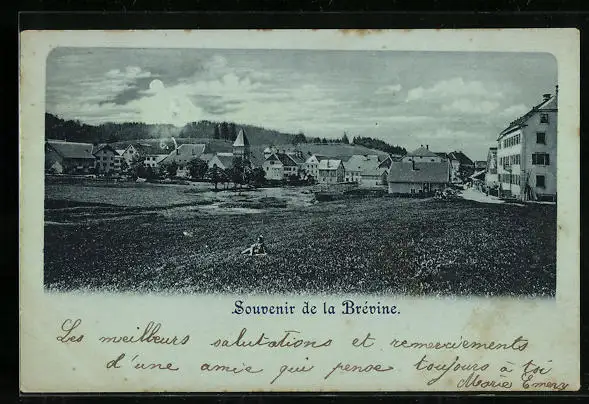 Souvenir de la Brévine.
Les meilleurs salutations et remerciements
d'une amie qui pense toujours à toi
Marie Emery